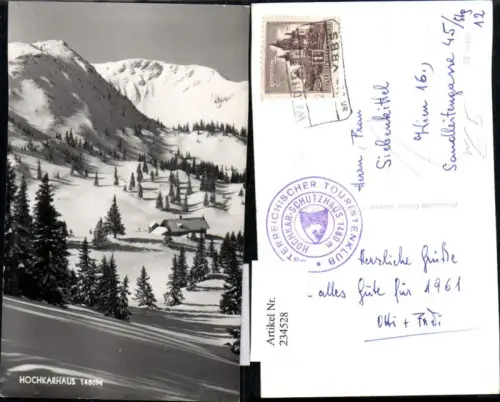 HOCHKARHAUS 1480M
ÖSTERREICHISCHER TOURISTENKLUB
HOCHKAR-SCHUTZHAUS 1491 m
Herrn, Frau
Siebenkittel
Wien 16.,
Sandleitengasse 45/Stg
12
Herzliche Grüße
alles Gute für 1961
Otti + Fredi
Artikel Nr.
234528